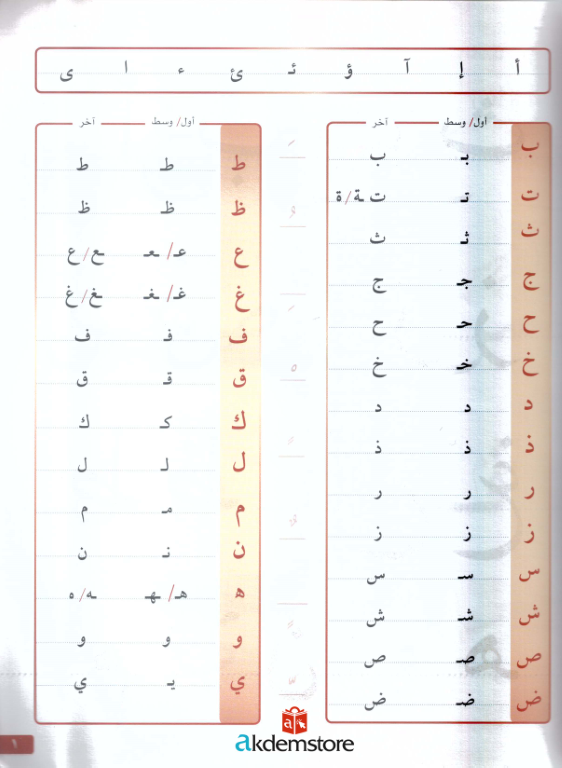 أ إ آ ؤ ئـ ئ ء ا ى
أول/ وسط آخر
ب بـ ب
ت تـ ت ـة/ة
ث ثـ ث
ج جـ ج
ح حـ ح
خ خـ خ
د د د
ذ ذ ذ
ر ر ر
ز ز ز
س سـ س
ش شـ ش
ص صـ ص
ض ضـ ض
أول/ وسط آخر
ط ط ط
ظ ظ ظ
ع عـ/ـعـ ـع/ع
غ غـ/ـغـ ـغ/غ
ف فـ ف
ق قـ ق
ك كـ ك
ل لـ ل
م مـ م
ن نـ ن
ه هـ/ـهـ ـه/ه
و و و
ي يـ ي
١
akdemstore